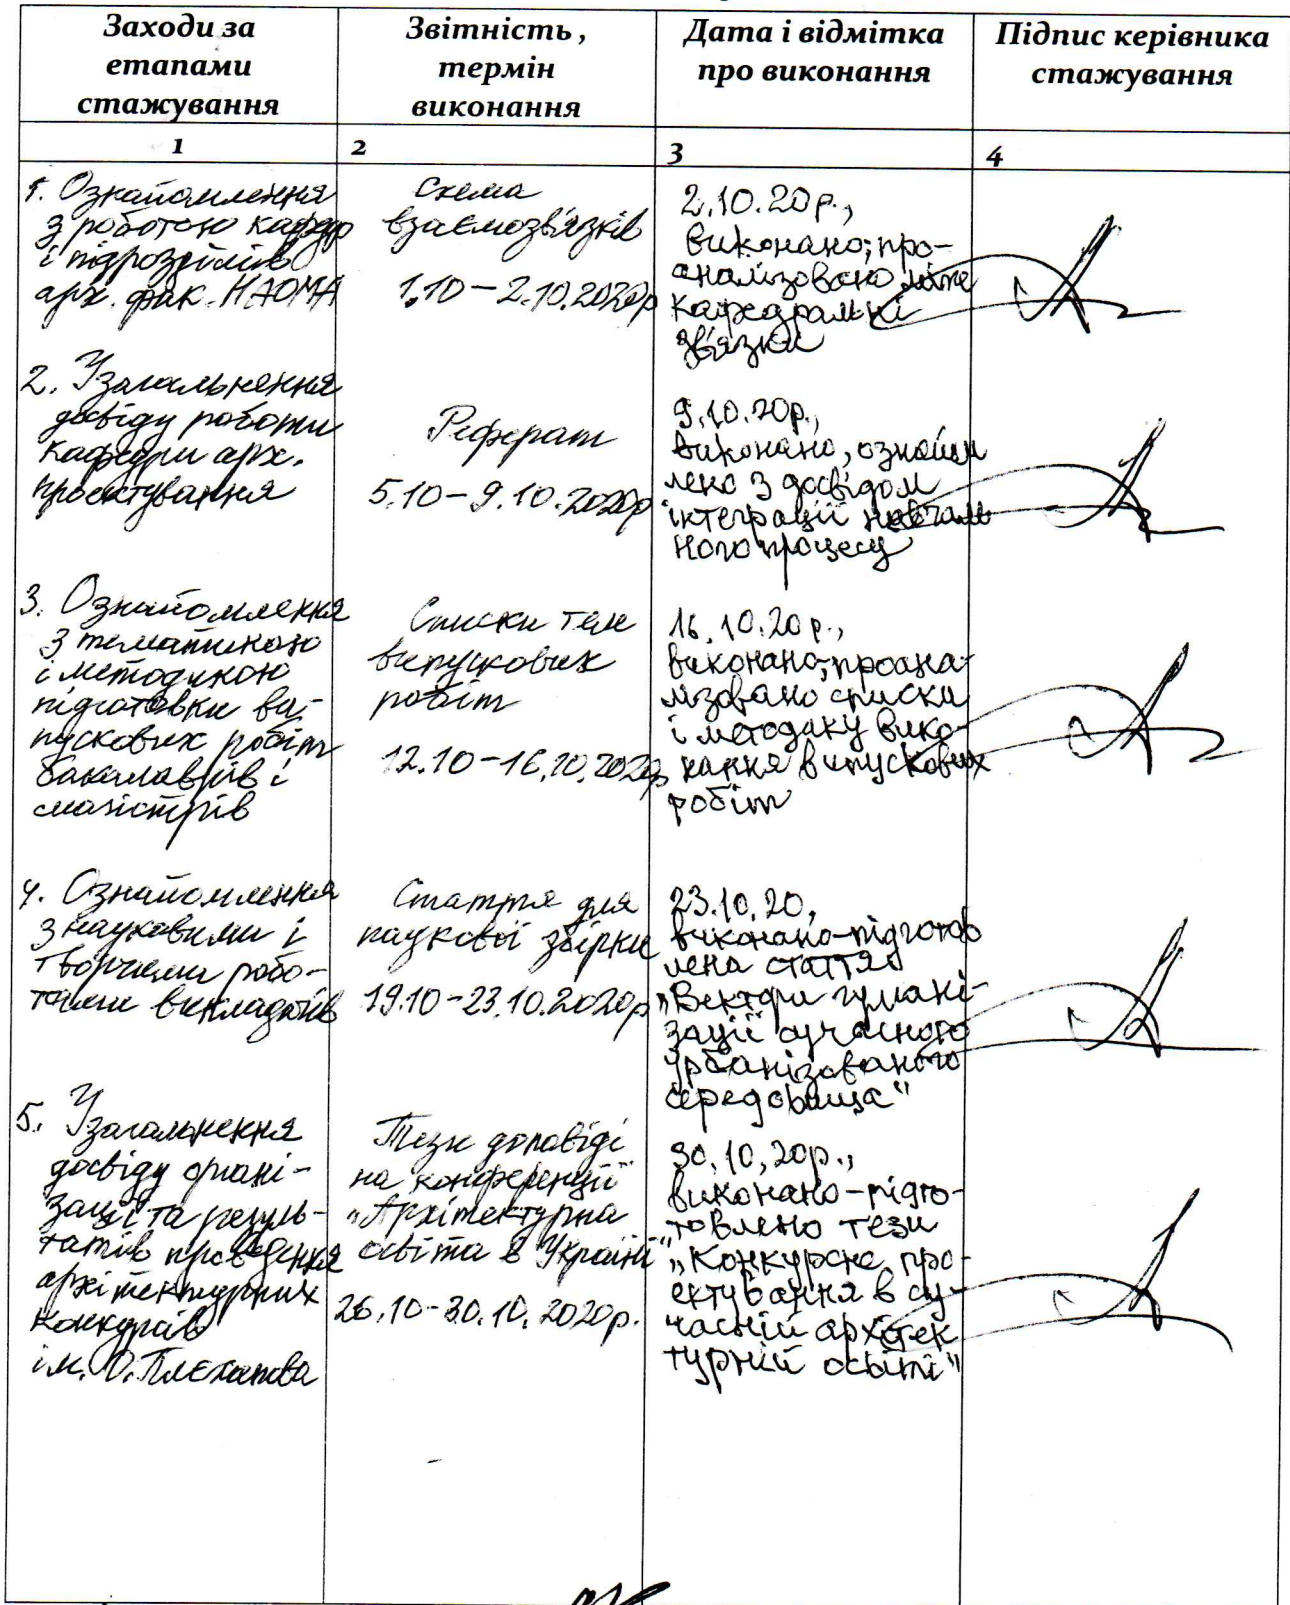 Заходи за
етапами
стажування
Звітність ,
термін
виконання
Дата і відмітка
про виконання
Підпис керівника
стажування
1
2
3
4
1. Ознайомлення
з роботою кафедр
і підрозділів
арх. фак. НАОМА
Схема
взаємозв'язків
1.10-2.10.2020р
2.10.20р.,
виконано; про-
аналізовано між
кафедральні
зв'язки
2. Узагальнення
досвіду роботи
кафедри арх.
проєктування
Реферат
5.10-9.10.2020р
9.10.20р.,
виконано, ознайом
лено з досвідом
інтеграції навчаль
ного процесу
3. Ознайомлення
з тематикою
і методикою
підготовки ви-
пускових робіт
бакалаврів і
магістрів
Списки тем
випускових
робіт
12.10-16.10.2020р
16.10.20р.,
виконано; проана-
лізовано списки
і методику вико-
нання випускових
робіт
4. Ознайомлення
з науковими і
творчими робо-
тами викладачів
Стаття для
наукової збірки
19.10-23.10.2020р
23.10.20,
виконано-підготов
лена стаття
„Вектори гумані-
зації сучасного
урбанізованого
середовища"
5. Узагальнення
досвіду органі-
зації та резуль-
татів проведення
архітектурних
конкурсів
ім. О.
Тези доповіді
на конференції
„Архітектурна
освіта в Україні"
26.10-30.10.2020р.
30.10.20р.,
виконано-підго-
товлено тези
„Конкурсне про-
ектування в су-
часній архітек
турній освіті"